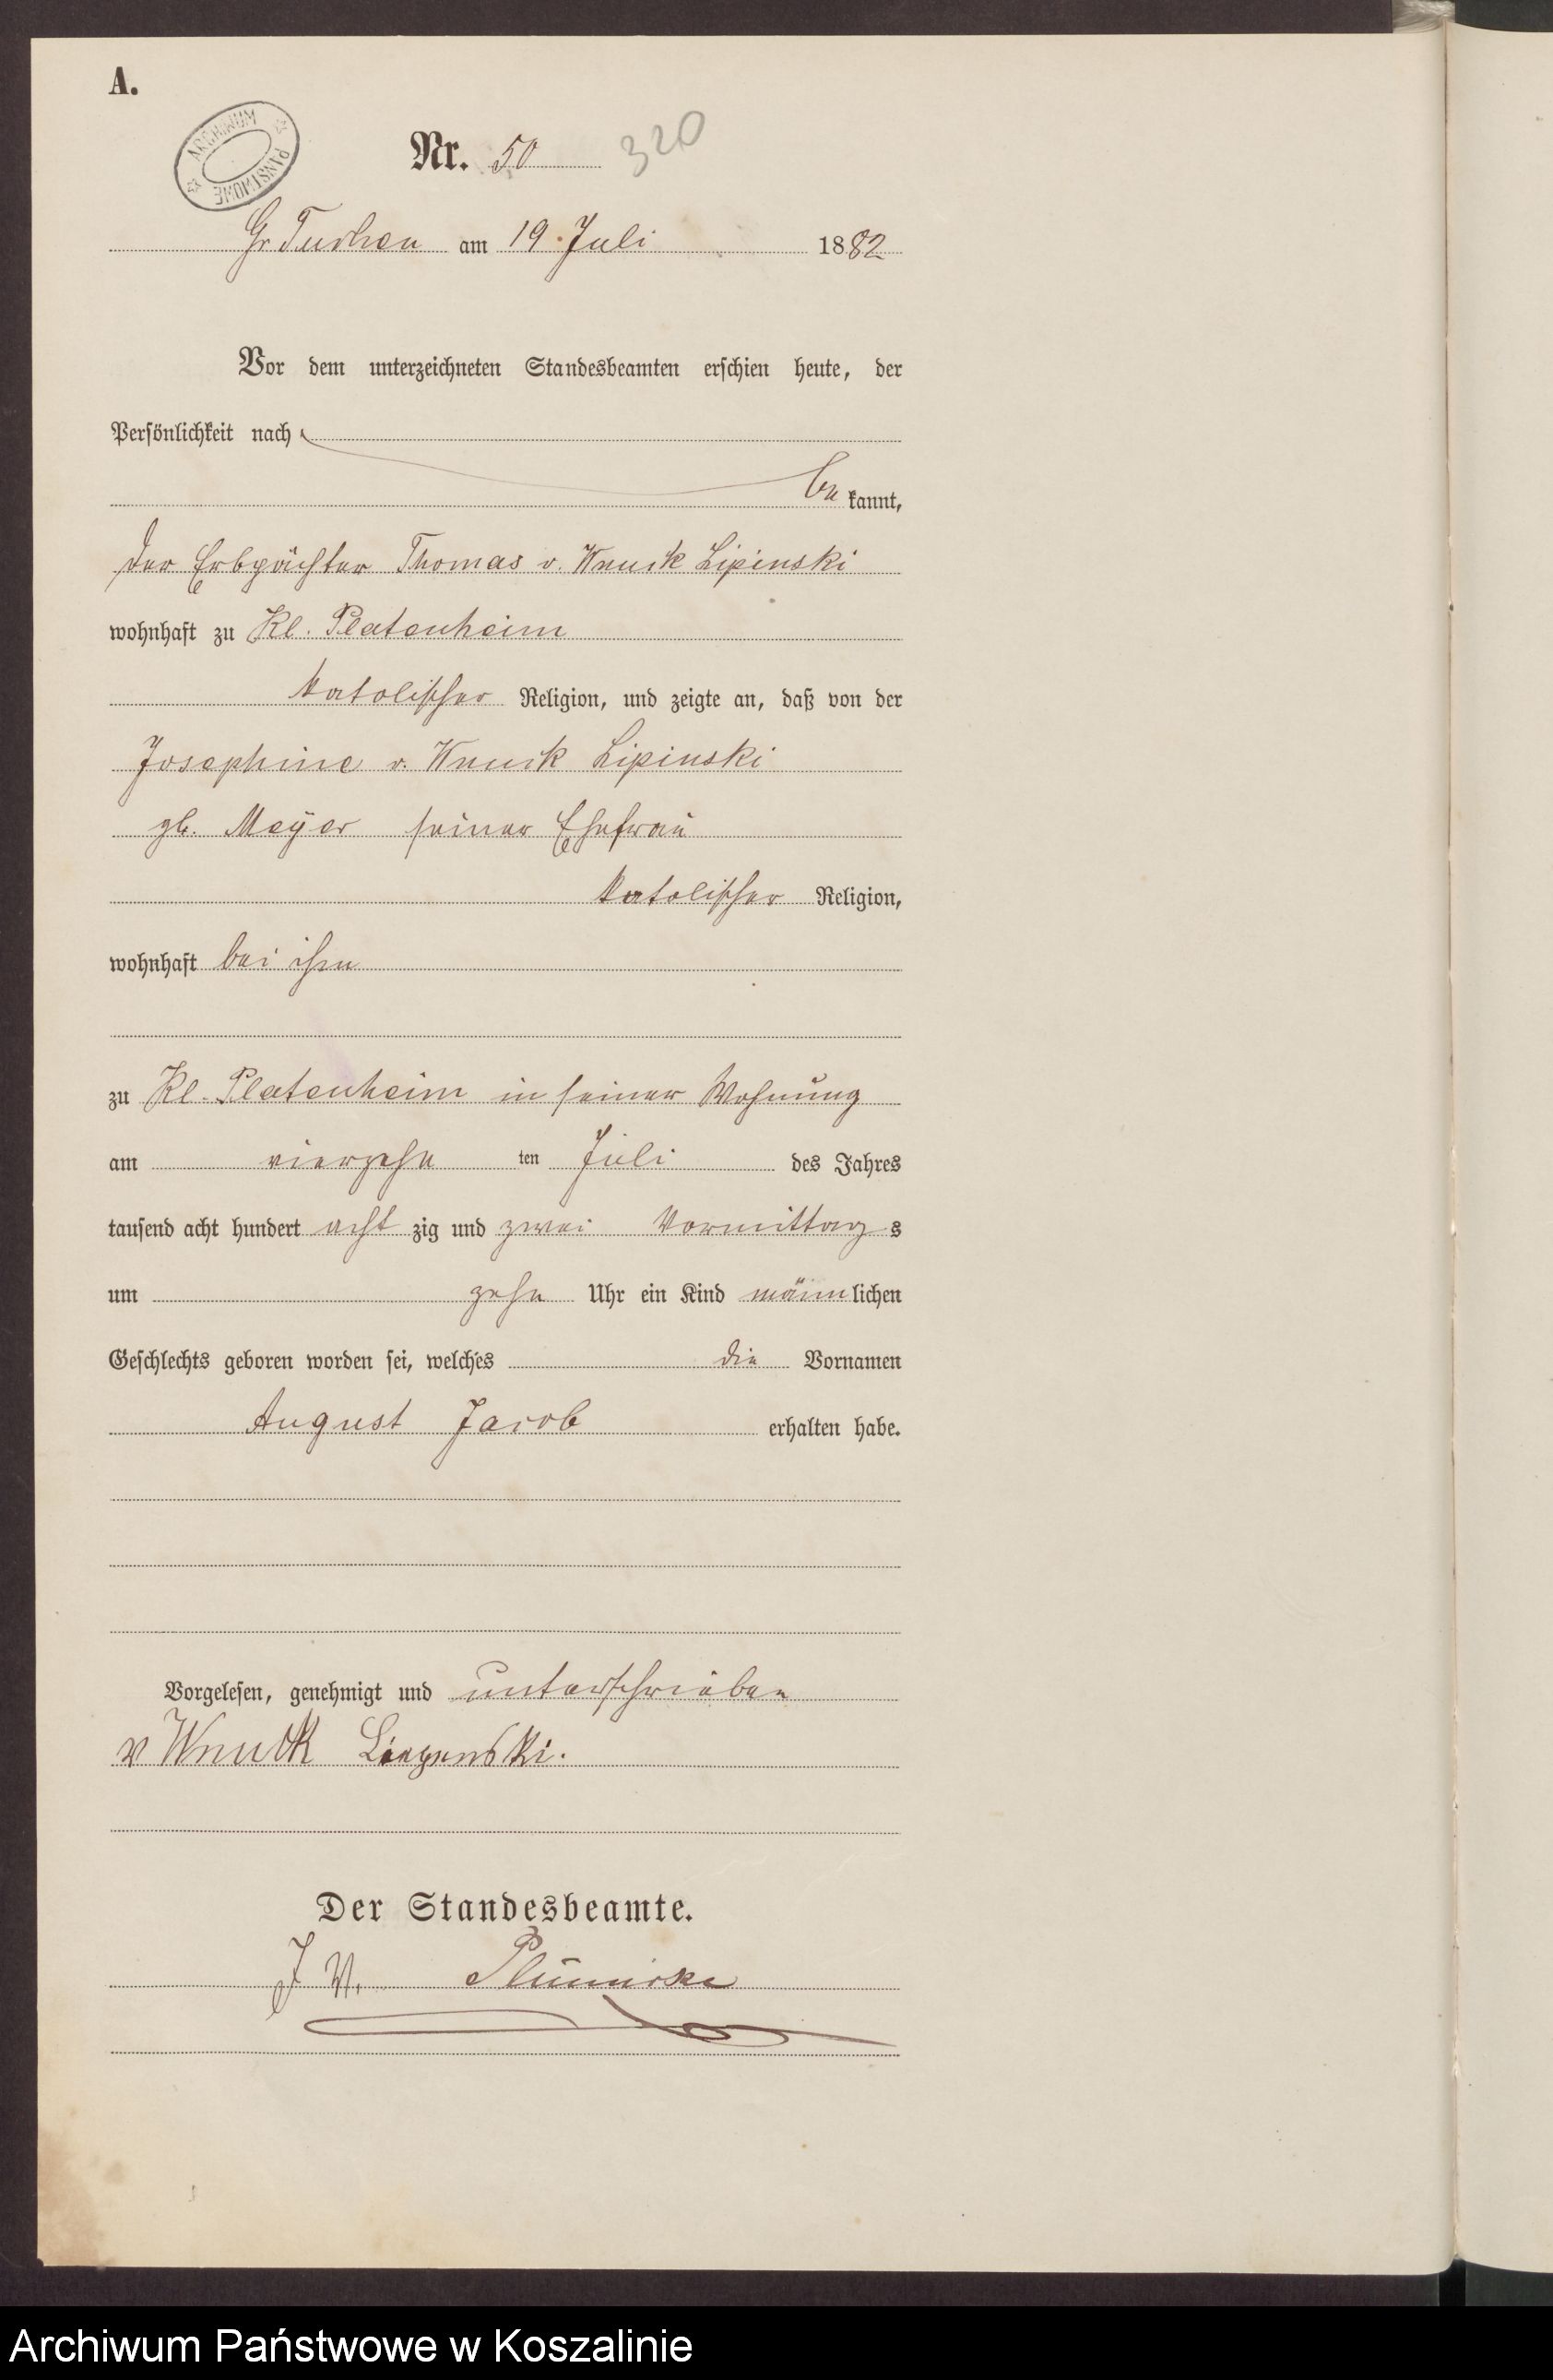 A.
ARCHIWUM PAŃSTWOWE
Nr. 50 320
Gr Tuchen am 19. Juli 1882
Vor dem unterzeichneten Standesbeamten erschien heute, der
Persönlichkeit nach
be kannt,
der Erbpächter Thomas v. Wnuck Lipinski
wohnhaft zu Kl. Platenheim
katolischer Religion, und zeigte an, daß von der
Josephine v. Wnuck Lipinski
gb. Meÿer seiner Ehefrau
katolischer Religion,
wohnhaft bei ihm
zu Kl. Platenheim in seiner Wohnung
am vierzehn ten Juli des Jahres
tausend acht hundert acht zig und zwei Vormittag s
um zehn Uhr ein Kind männlichen
Geschlechts geboren worden sei, welches die Vornamen
August Jacob erhalten habe.
Vorgelesen, genehmigt und unterschrieben
v Wnuck
Der Standesbeamte.
J V.
Archiwum Państwowe w Koszalinie